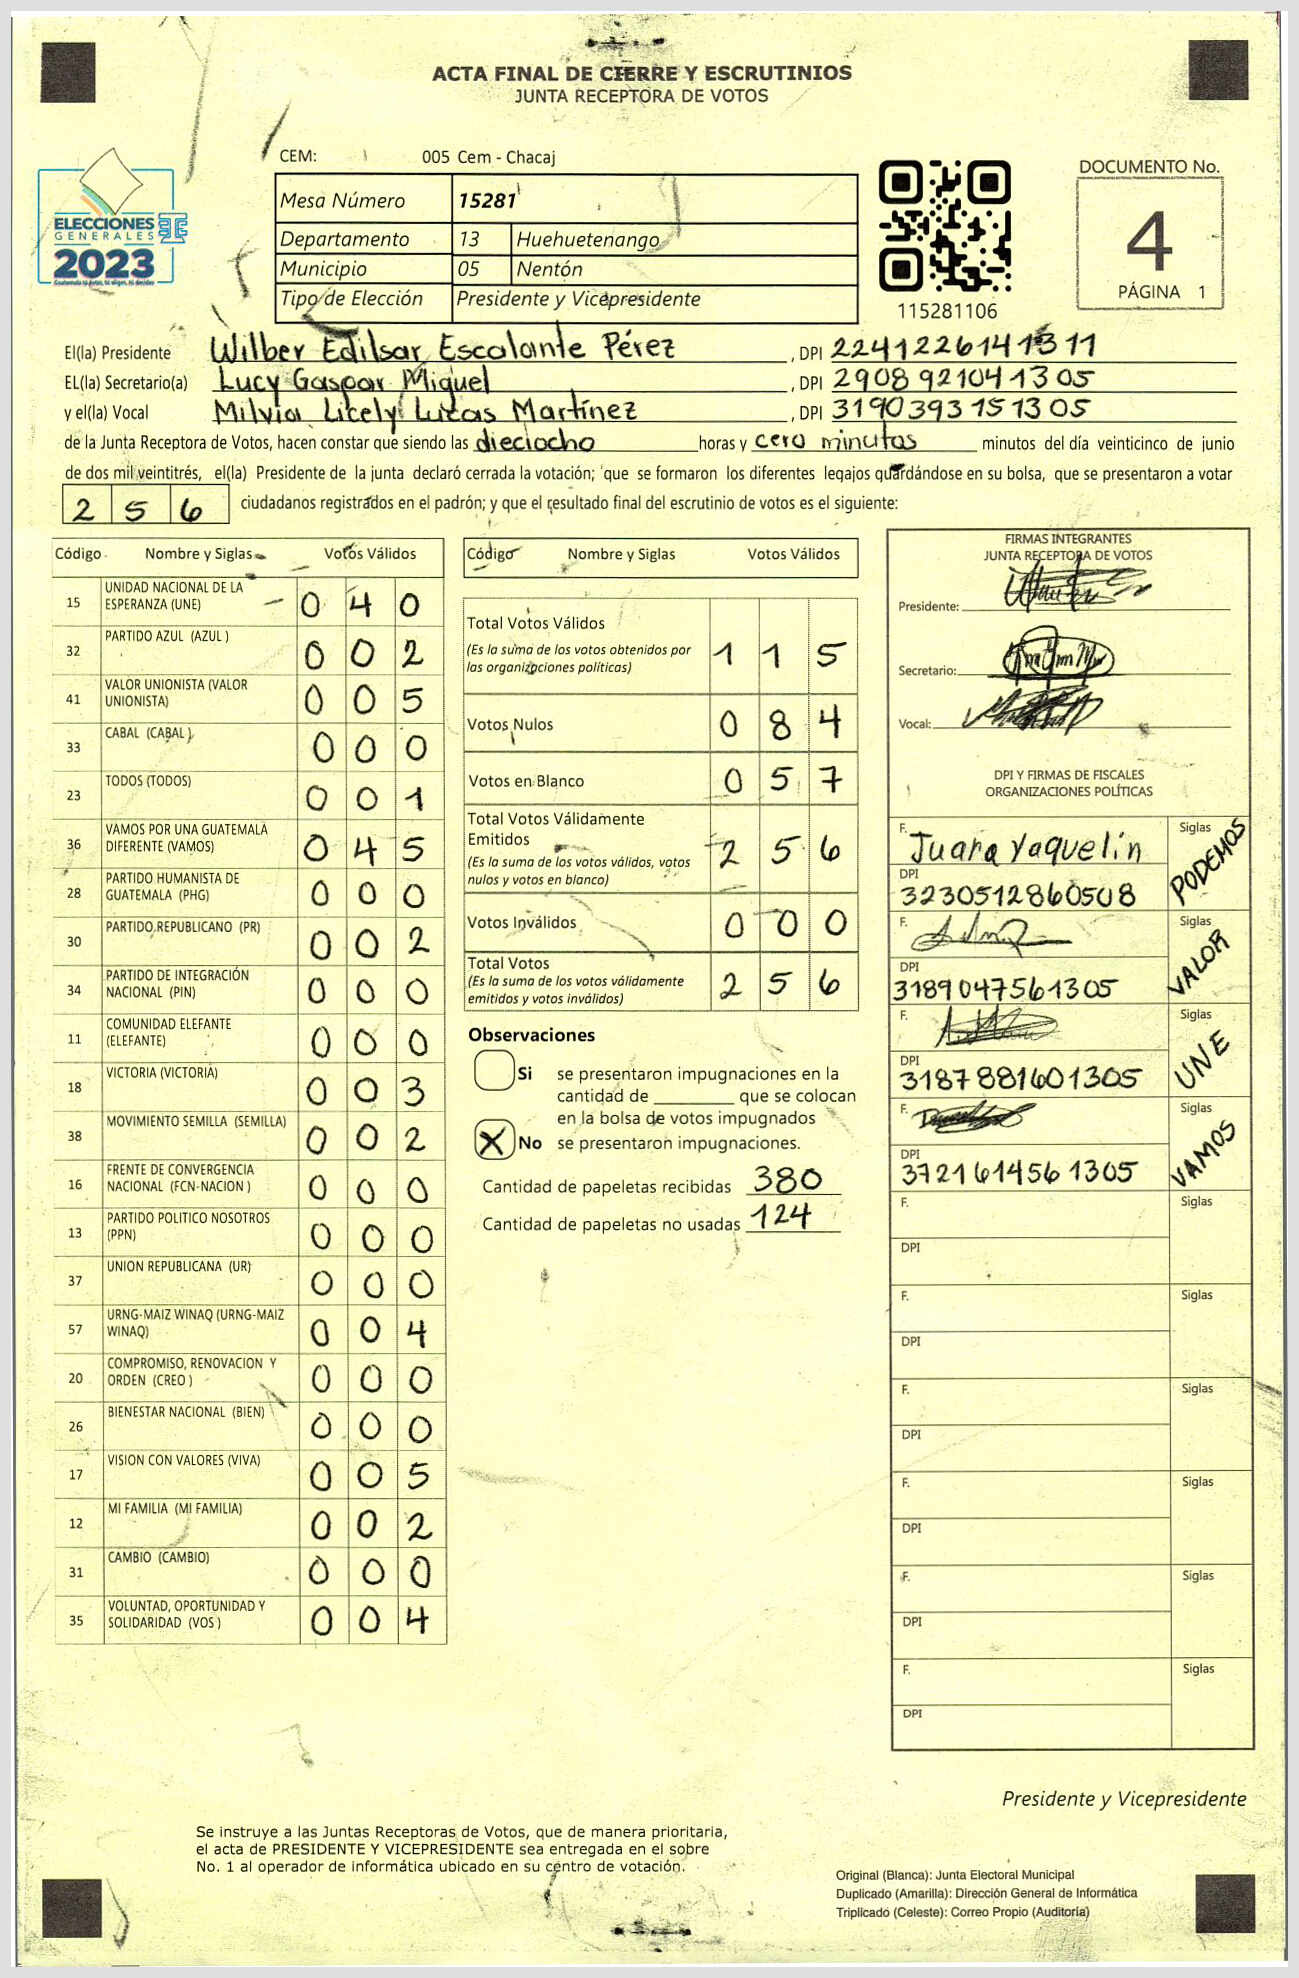 ACTA FINAL DE CIERRE Y ESCRUTINIOS
JUNTA RECEPTORA DE VOTOS
CEM: 005 Cem - Chacaj
ELECCIONES
GENERALES
2023
Mesa Número 15281
Departamento 13 Huehuetenango
Municipio 05 Nentón
Tipo de Elección Presidente y Vicepresidente
115281106
DOCUMENTO No.
4
PÁGINA 1
El(la) Presidente Wilber Edilsar Escalante Pérez , DPI 2241226141311
EL(la) Secretario(a) Lucy Gaspar Miguel , DPI 2908921041305
y el(la) Vocal Milvia Licely Lucas Martínez , DPI 3190393151305
de la Junta Receptora de Votos, hacen constar que siendo las dieciocho horas y cero minutos minutos del día veinticinco de junio
de dos mil veintitrés, el(la) Presidente de la junta declaró cerrada la votación; que se formaron los diferentes legajos guardándose en su bolsa, que se presentaron a votar
256 ciudadanos registrados en el padrón; y que el resultado final del escrutinio de votos es el siguiente:
Código Nombre y Siglas Votos Válidos
15 UNIDAD NACIONAL DE LA ESPERANZA (UNE) 0 4 0
32 PARTIDO AZUL (AZUL ) 0 0 2
41 VALOR UNIONISTA (VALOR UNIONISTA) 0 0 5
33 CABAL (CABAL ) 0 0 0
23 TODOS (TODOS) 0 0 1
36 VAMOS POR UNA GUATEMALA DIFERENTE (VAMOS) 0 4 5
28 PARTIDO HUMANISTA DE GUATEMALA (PHG) 0 0 0
30 PARTIDO REPUBLICANO (PR) 0 0 2
34 PARTIDO DE INTEGRACIÓN NACIONAL (PIN) 0 0 0
11 COMUNIDAD ELEFANTE (ELEFANTE) 0 0 0
18 VICTORIA (VICTORIA) 0 0 3
38 MOVIMIENTO SEMILLA (SEMILLA) 0 0 2
16 FRENTE DE CONVERGENCIA NACIONAL (FCN-NACION ) 0 0 0
13 PARTIDO POLITICO NOSOTROS (PPN) 0 0 0
37 UNION REPUBLICANA (UR) 0 0 0
57 URNG-MAIZ WINAQ (URNG-MAIZ WINAQ) 0 0 4
20 COMPROMISO, RENOVACION Y ORDEN (CREO ) 0 0 0
26 BIENESTAR NACIONAL (BIEN) 0 0 0
17 VISION CON VALORES (VIVA) 0 0 5
12 MI FAMILIA (MI FAMILIA) 0 0 2
31 CAMBIO (CAMBIO) 0 0 0
35 VOLUNTAD, OPORTUNIDAD Y SOLIDARIDAD (VOS ) 0 0 4
Código Nombre y Siglas Votos Válidos
Total Votos Válidos 1 1 5
(Es la suma de los votos obtenidos por
las organizaciones políticas)
Votos Nulos 0 8 4
Votos en Blanco 0 5 7
Total Votos Válidamente
Emitidos 2 5 6
(Es la suma de los votos válidos, votos
nulos y votos en blanco)
Votos Inválidos 0 0 0
Total Votos 2 5 6
(Es la suma de los votos válidamente
emitidos y votos inválidos)
Observaciones
Si se presentaron impugnaciones en la
cantidad de ________ que se colocan
en la bolsa de votos impugnados
X No se presentaron impugnaciones.
Cantidad de papeletas recibidas 380
Cantidad de papeletas no usadas 124
FIRMAS INTEGRANTES
JUNTA RECEPTORA DE VOTOS
Presidente:
Secretario:
Vocal:
DPI Y FIRMAS DE FISCALES
ORGANIZACIONES POLÍTICAS
F. Juana Yaquelin Siglas PODEMOS
DPI 3230512860508
F. Siglas VALOR
DPI 3189047561305
F. Siglas UNE
DPI 3187881601305
F. Siglas VAMOS
DPI 3721614561305
F. Siglas
DPI
F. Siglas
DPI
F. Siglas
DPI
F. Siglas
DPI
F. Siglas
DPI
F. Siglas
DPI
Presidente y Vicepresidente
Se instruye a las Juntas Receptoras de Votos, que de manera prioritaria,
el acta de PRESIDENTE Y VICEPRESIDENTE sea entregada en el sobre
No. 1 al operador de informática ubicado en su centro de votación.
Original (Blanca): Junta Electoral Municipal
Duplicado (Amarilla): Dirección General de Informática
Triplicado (Celeste): Correo Propio (Auditoría)